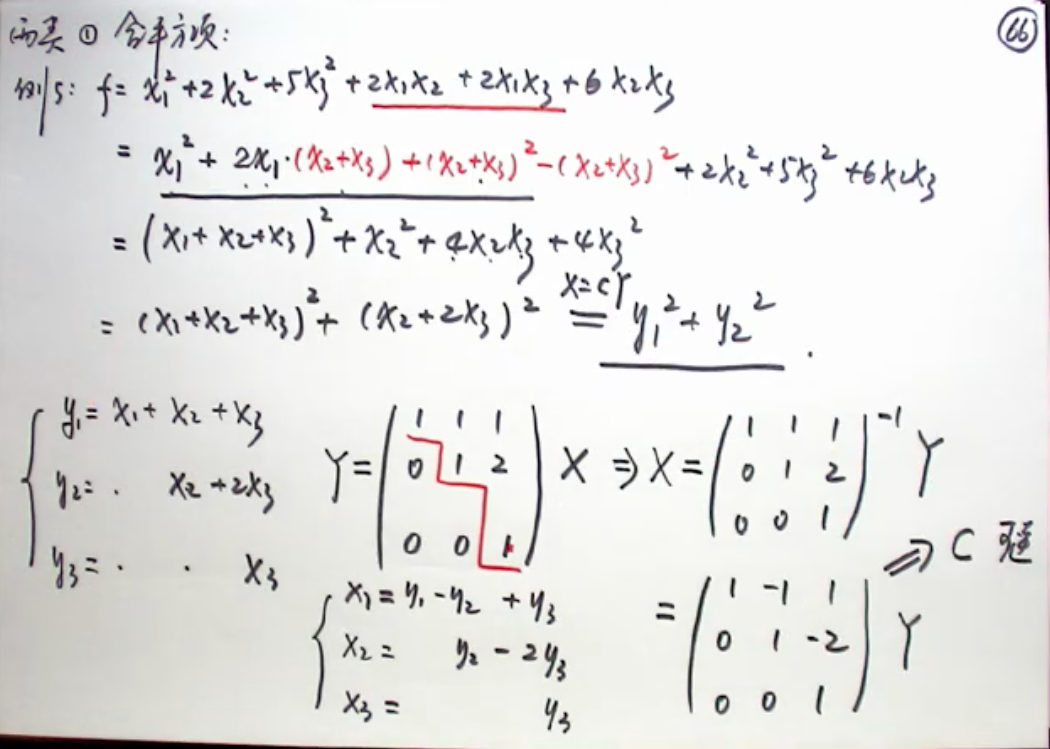 66
两类 ① 含平方项:
例5: f = x₁² + 2x₂² + 5x₃² + 2x₁x₂ + 2x₁x₃ + 6x₂x₃
= x₁² + 2x₁·(x₂+x₃) + (x₂+x₃)² - (x₂+x₃)² + 2x₂² + 5x₃² + 6x₂x₃
= (x₁+x₂+x₃)² + x₂² + 4x₂x₃ + 4x₃²
= (x₁+x₂+x₃)² + (x₂+2x₃)² X=CY = y₁² + y₂² .
{ y₁ = x₁ + x₂ + x₃
y₂ = . x₂ + 2x₃
y₃ = . . x₃
Y = ( 1 1 1
0 1 2
0 0 1 ) X ⇒ X = ( 1 1 1
0 1 2
0 0 1 )⁻¹ Y
⇒ C 可逆
{ x₁ = y₁ - y₂ + y₃
x₂ = y₂ - 2y₃
x₃ = y₃
= ( 1 -1 1
0 1 -2
0 0 1 ) Y